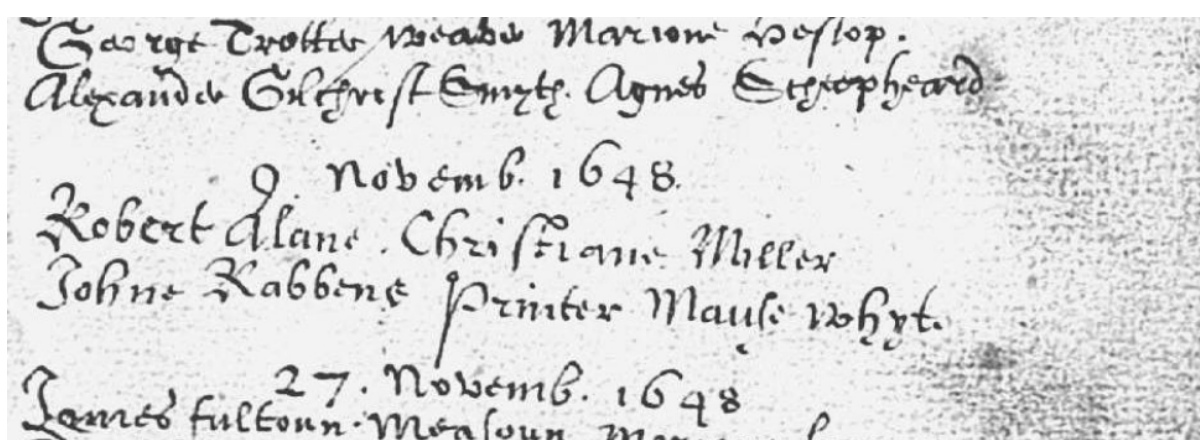 George Trotter weaver Marione Heslop.
Alexander Gilchrist Smyth. Agnes Scheepheard
9 Novemb. 1648.
Robert Alane. Christiane Miller
Johne Rabbene Printer Mause whyt.
27. Novemb. 1648
James fultoun. Measoun